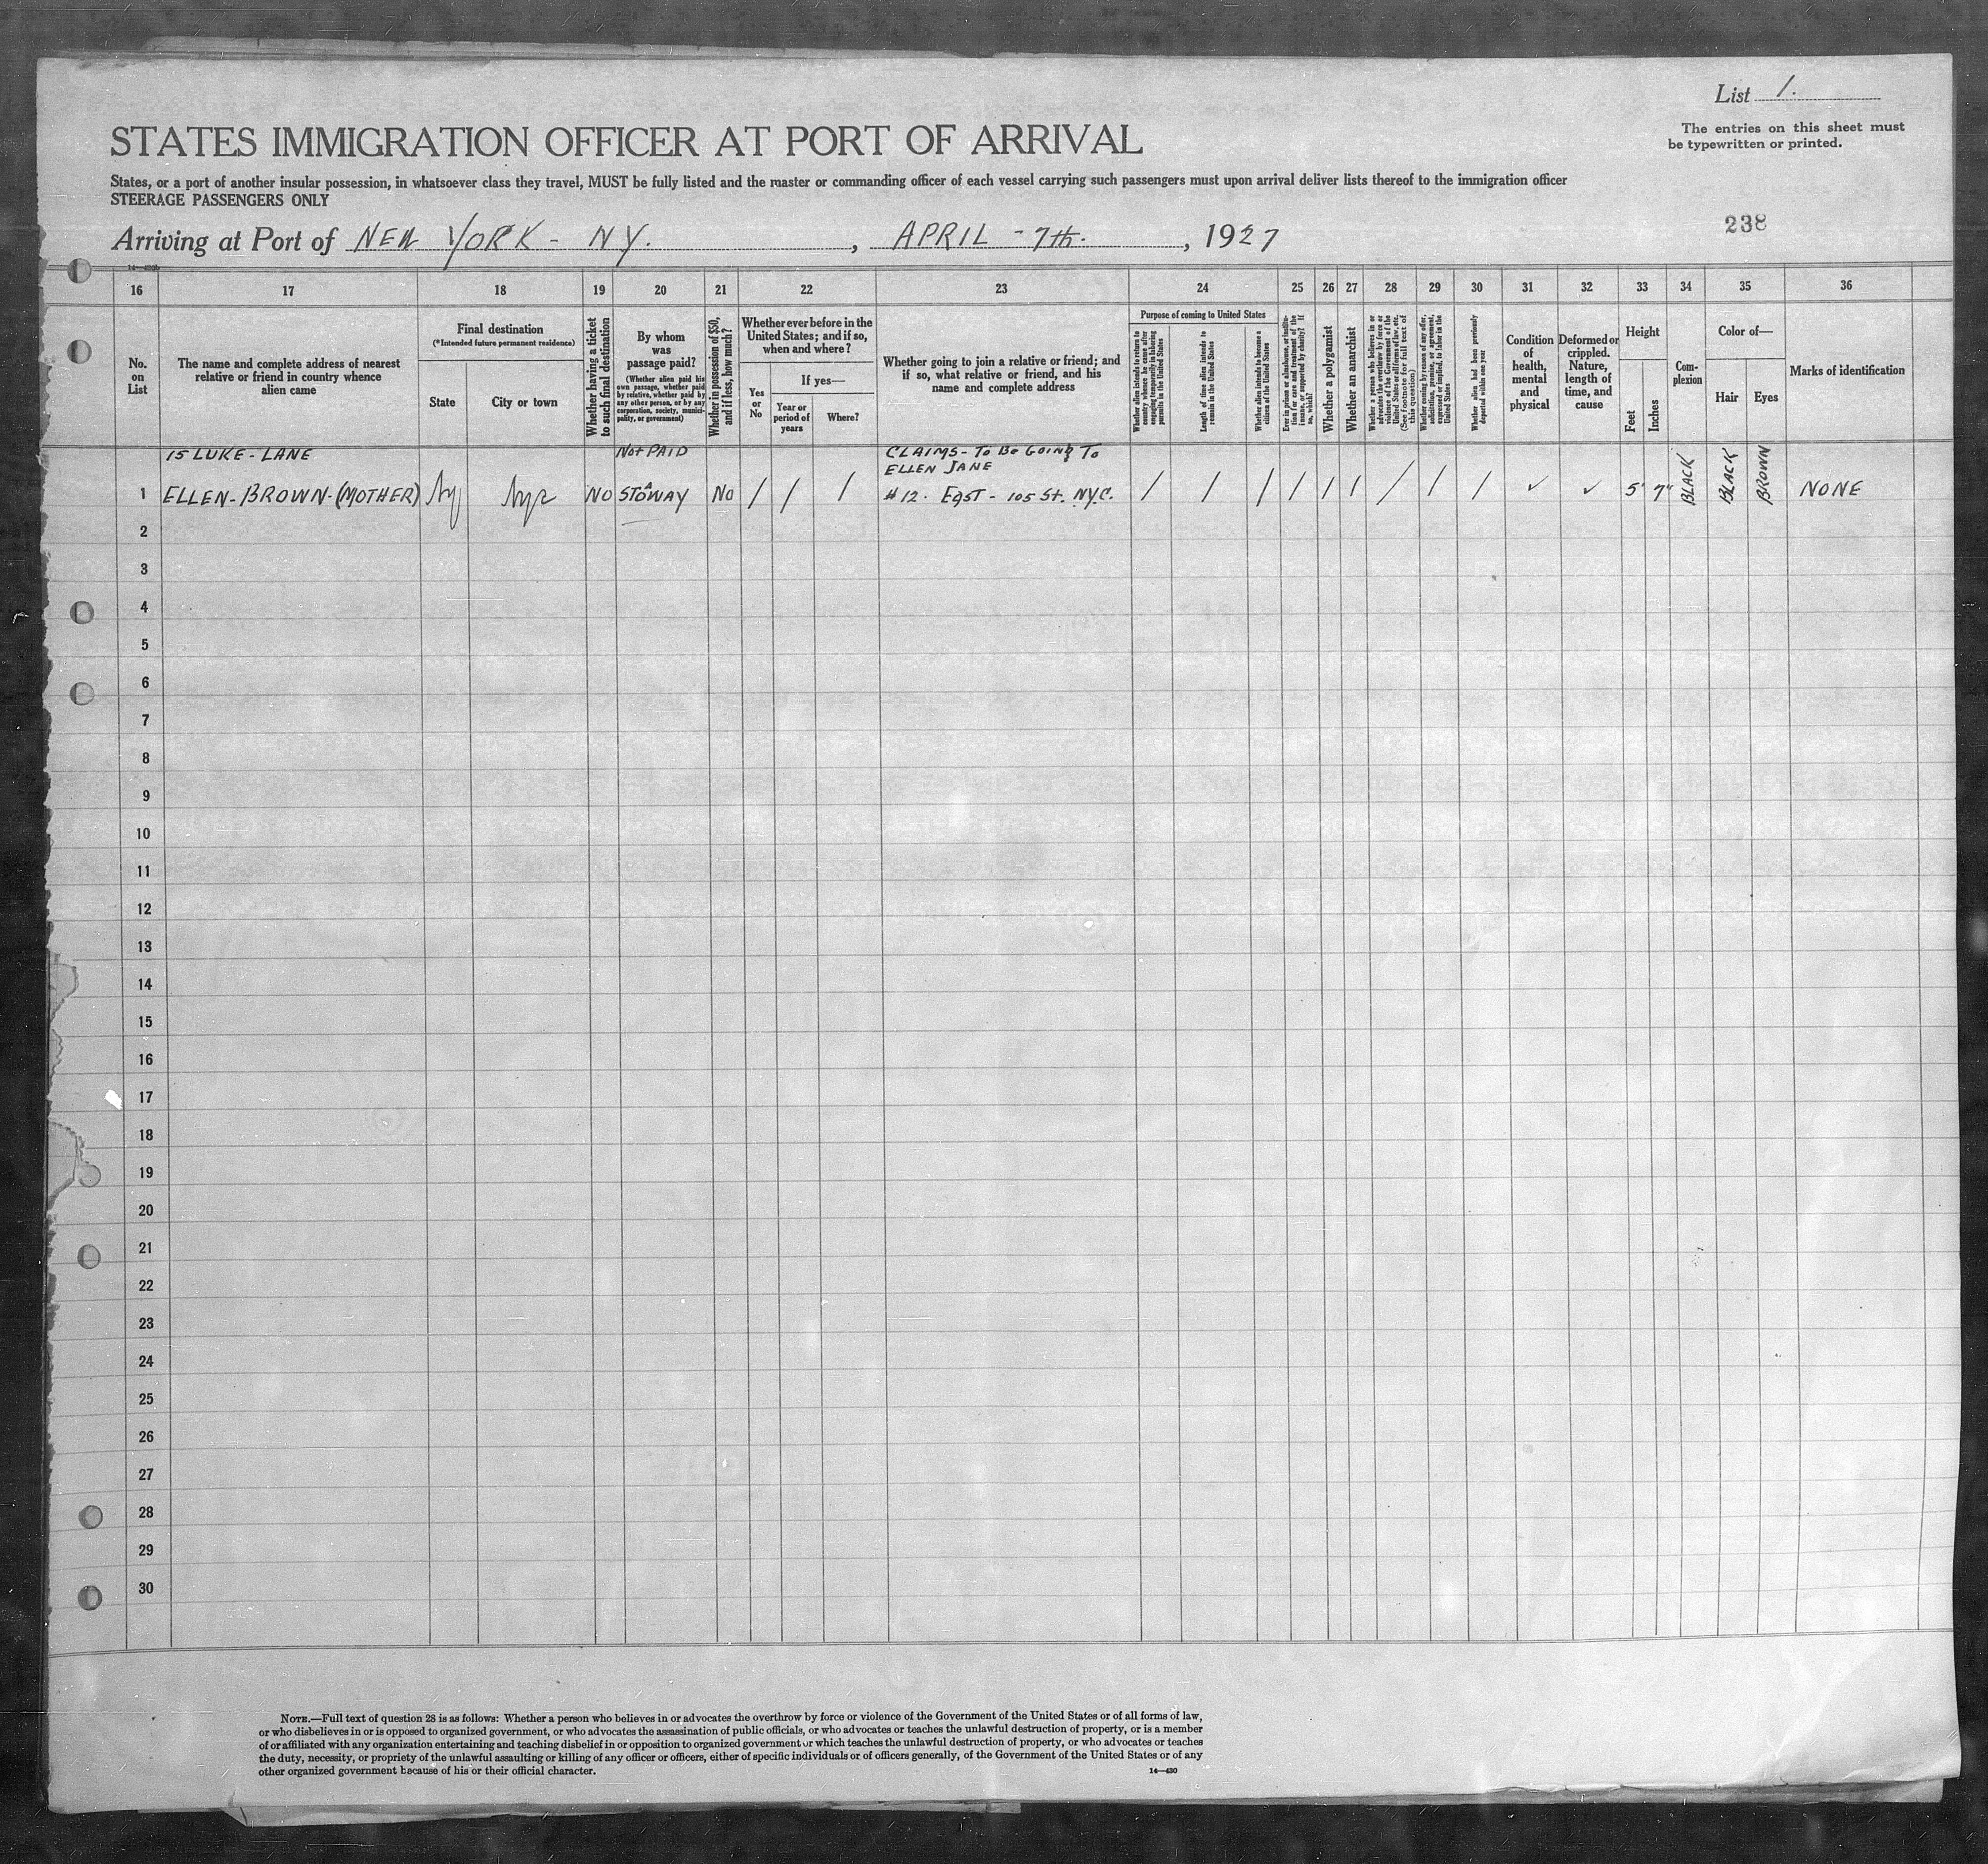 List 1.
The entries on this sheet must
be typewritten or printed.
STATES IMMIGRATION OFFICER AT PORT OF ARRIVAL
States, or a port of another insular possession, in whatsoever class they travel, MUST be fully listed and the master or commanding officer of each vessel carrying such passengers must upon arrival deliver lists thereof to the immigration officer
STEERAGE PASSENGERS ONLY
238
Arriving at Port of NEW YORK - NY. , APRIL - 7th. , 1927
14—430b
16 17 18 19 20 21 22 23 24 25 26 27 28 29 30 31 32 33 34 35 36
No.
on
List
The name and complete address of nearest
relative or friend in country whence
alien came
Final destination
(*Intended future permanent residence)
State
City or town
Whether having a ticket
to such final destination
By whom
was
passage paid?
(Whether alien paid his
own passage, whether paid
by relative, whether paid by
any other person, or by any
corporation, society, munici-
pality, or government)
Whether in possession of $50,
and if less, how much?
Whether ever before in the
United States; and if so,
when and where?
Yes
or
No
If yes—
Year or
period of
years
Where?
Whether going to join a relative or friend; and
if so, what relative or friend, and his
name and complete address
Purpose of coming to United States
Whether alien intends to return to
country whence he came after
engaging temporarily in laboring
pursuits in the United States
Length of time alien intends to
remain in the United States
Whether alien intends to become a
citizen of the United States
Ever in prison or almshouse, or institu-
tion for care and treatment of the
insane, or supported by charity? If
so, which?
Whether a polygamist
Whether an anarchist
Whether a person who believes in or
advocates the overthrow by force or
violence of the Government of the
United States or all forms of law, etc.
(See footnote for full text of
this question)
Whether coming by reason of any offer,
solicitation, promise, or agreement,
expressed or implied, to labor in the
United States
Whether alien had been previously
deported within one year
Condition
of
health,
mental
and
physical
Deformed or
crippled.
Nature,
length of
time, and
cause
Height
Feet
Inches
Com-
plexion
Color of—
Hair
Eyes
Marks of identification
15 LUKE - LANE
NOT PAID
CLAIMS - TO BE GOING TO
ELLEN JANE
1 ELLEN - BROWN - (MOTHER) NY NYC NO STOWAY NO / / / #12. EAST - 105 ST. N.Y.C. / / / / / / / / / ✓ ✓ 5' 7" BLACK BLACK BROWN NONE
A
2
3
4
5
6
7
8
9
10
11
12
13
14
15
16
17
18
19
20
21
22
23
24
25
26
27
28
29
30
NOTE.—Full text of question 28 is as follows: Whether a person who believes in or advocates the overthrow by force or violence of the Government of the United States or of all forms of law,
or who disbelieves in or is opposed to organized government, or who advocates the assassination of public officials, or who advocates or teaches the unlawful destruction of property, or is a member
of or affiliated with any organization entertaining and teaching disbelief in or opposition to organized government or which teaches the unlawful destruction of property, or who advocates or teaches
the duty, necessity, or propriety of the unlawful assaulting or killing of any officer or officers, either of specific individuals or of officers generally, of the Government of the United States or of any
other organized government because of his or their official character.
14—430